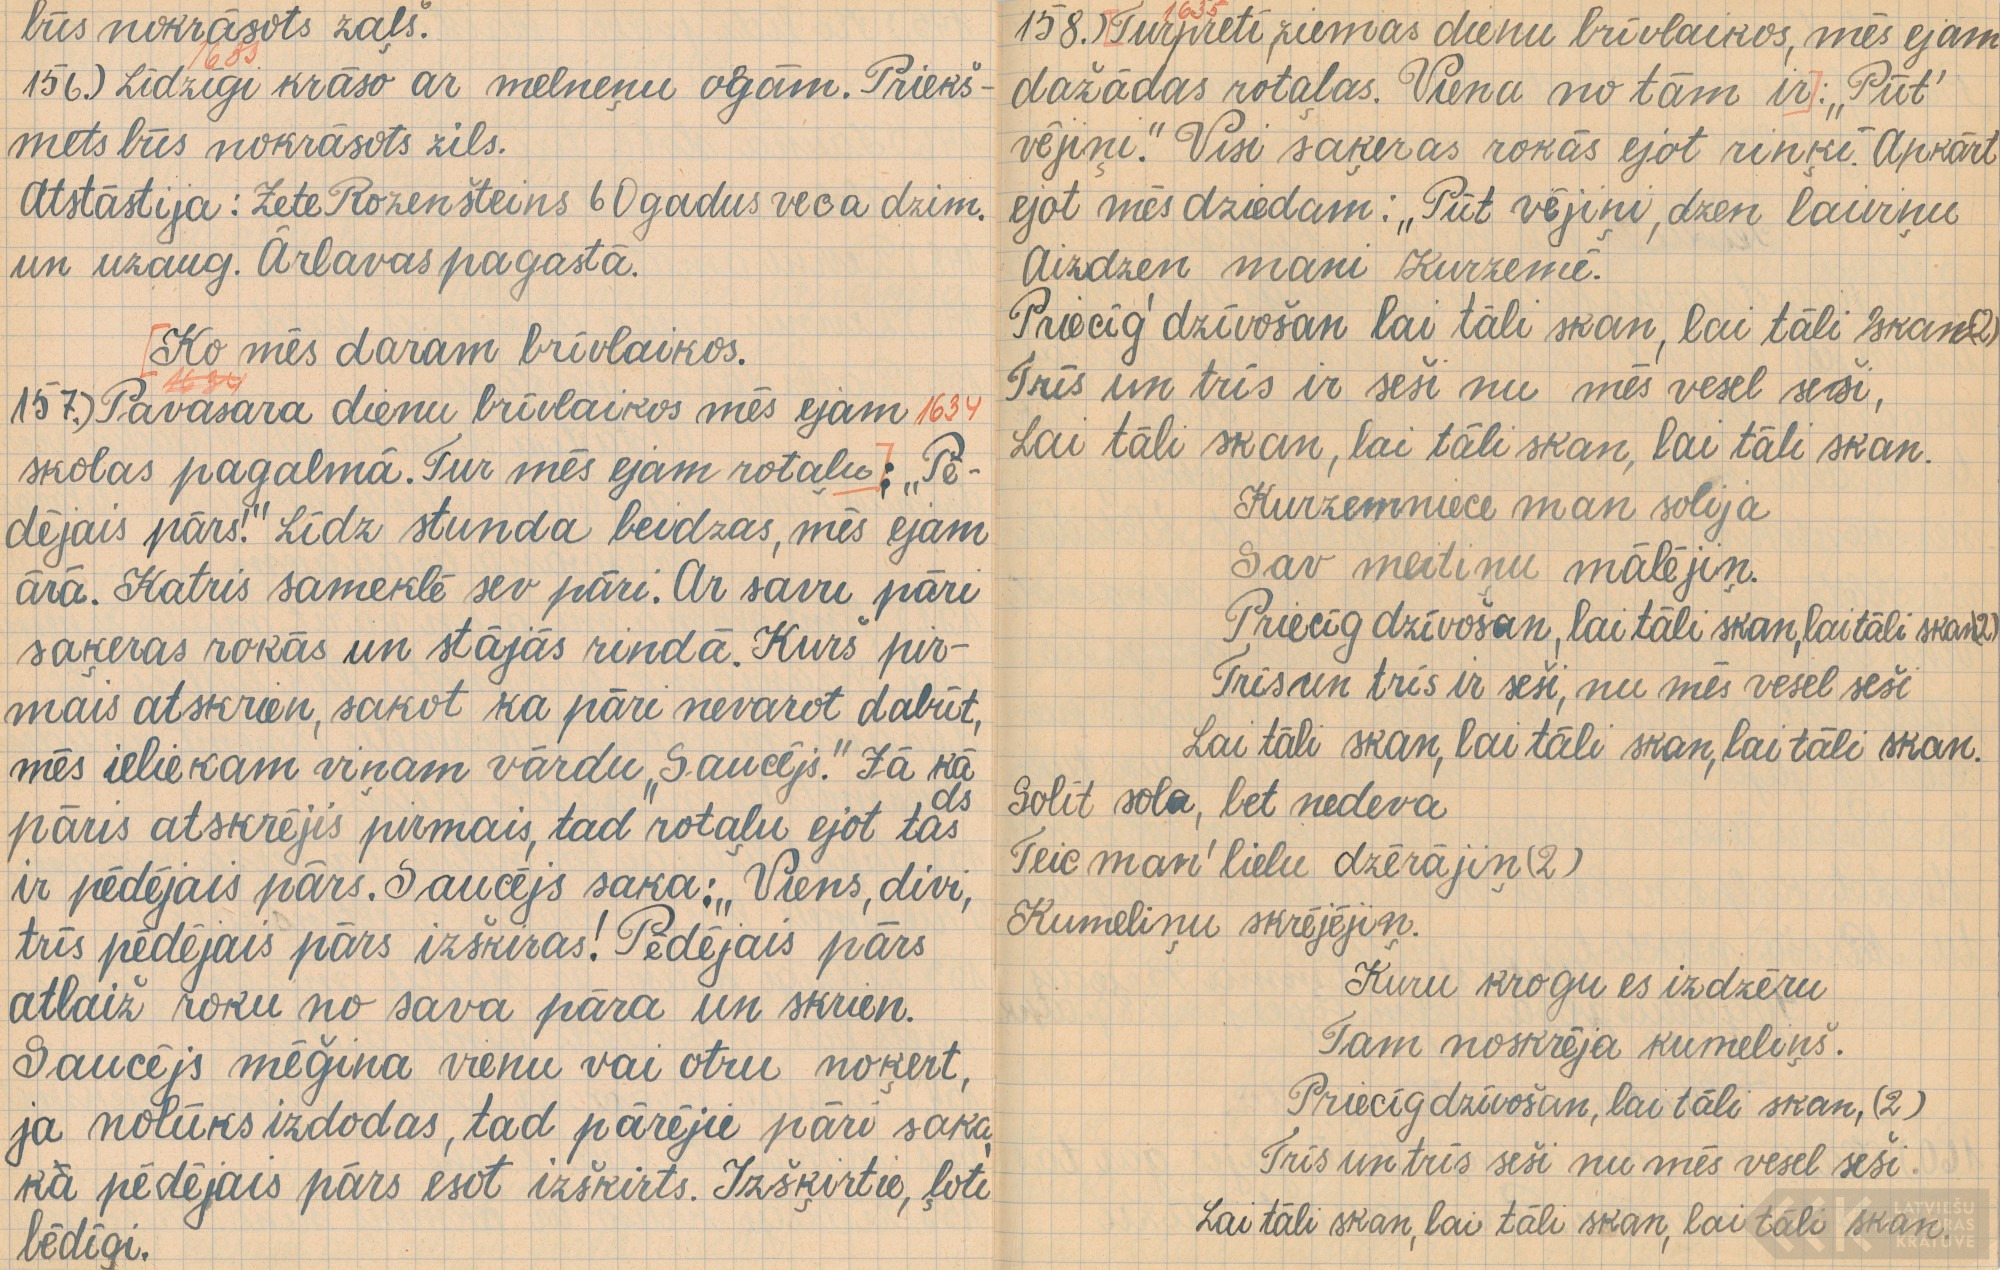 būs nokrāsots zaļš.
1633
156.) Līdzīgi krāso ar melneņu ogām. Priekš-
mets būs nokrāsots zils.
Atstāstija: Zete Rozenšteins 60 gadus veca dzim.
un uzaug. Ārlavas pagastā.
[Ko mēs daram brīvlaikos.
1634
157.) Pavasara dienu brīvlaikos mēs ejam 1634
skolas pagalmā. Tur mēs ejam rotaļu]: „Pē-
dējais pārs!" Līdz stunda beidzas, mēs ejam
ārā. Katris sameklē sev pāri. Ar savu pāri
saķeras rokās un stājās rindā. Kurš pir-
mais atskrien, sakot ka pāri nevarot dabūt,
mēs ieliekam viņam vārdu „Saucējs." Jā kā
pāris atskrējis pirmais, tad rotaļu ejot tāds
ir pēdējais pārs. Saucējs saka: „Viens, divi,
trīs pēdējais pārs izšķiras! Pēdējais pārs
atlaiž roku no sava pāra un skrien.
Saucējs mēģina vienu vai otru noķert,
ja nolūks izdodas, tad pārējie pāri saka,
kā pēdējais pārs esot izšķirts. Izšķirtie, ļoti
bēdīgi.
1635
158.) [Turpretī ziemas dienu brīvlaikos, mēs ejam
dažādas rotaļas. Viena no tām ir]: „Pūt'
vējiņi." Visi saķeras rokās ejot riņķī. Apkārt
ejot mēs dziedam: „Pūt vējiņi, dzen laiviņu
Aizdzen mani Kurzemē.
Priecīg' dzīvošan lai tāli skan, lai tāli skan (2)
Trīs un trīs ir seši nu mēs vesel seši,
Lai tāli skan, lai tāli skan, lai tāli skan.
Kurzemniece man solija
Sav meitiņu mālējiņ.
Priecīg dzīvošan, lai tāli skan, lai tāli skan (2)
Trīs un trīs ir seši, nu mēs vesel seši
Lai tāli skan, lai tāli skan, lai tāli skan.
Solīt sola, bet nedeva
Teic man' lielu dzērājiņ (2)
Kumeliņu skrējējiņ.
Kuru krogu es izdzēru
Tam noskrēja kumeliņš.
Priecīg dzīvošan, lai tāli skan, (2)
Trīs un trīs seši nu mēs vesel seši.
Lai tāli skan, lai tāli skan, lai tāli skan.
LATVIEŠU
FOLKLORAS
KRĀTUVE